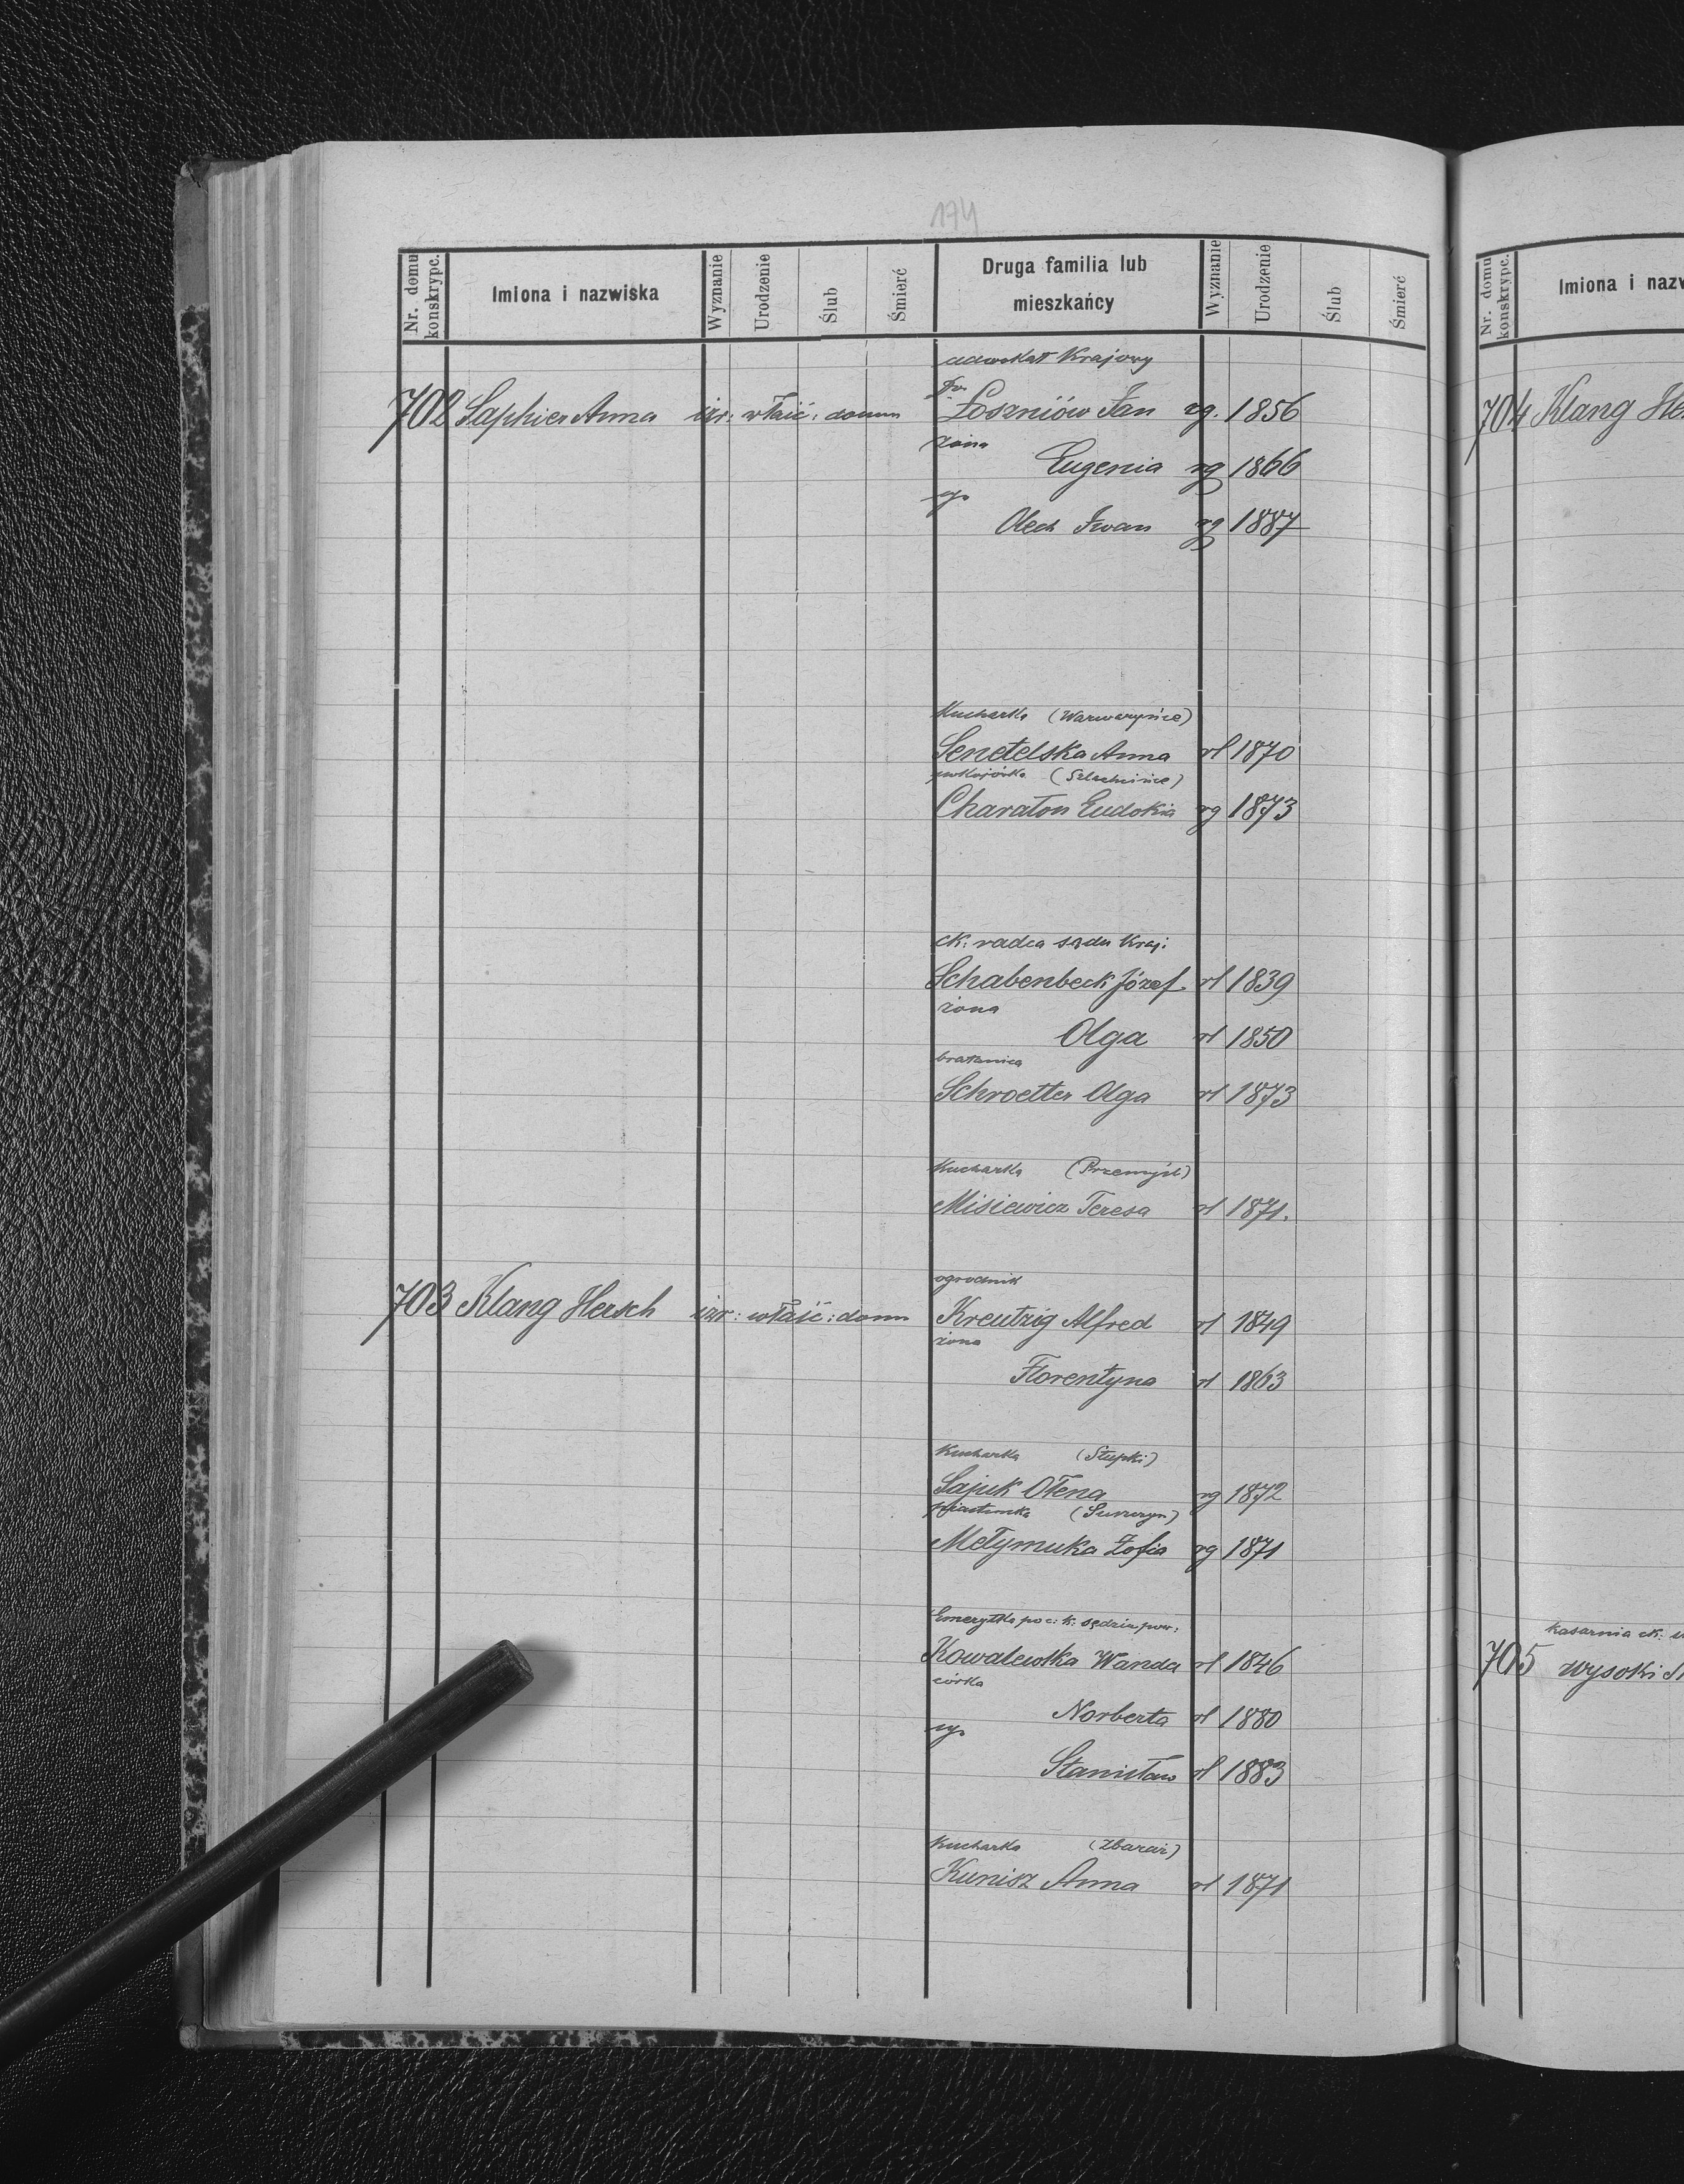 174
Nr. domu konskrypc.
Imiona i nazwiska
Wyznanie
Urodzenie
Ślub
Śmierć
Druga familia lub
mieszkańcy
Wyznanie
Urodzenie
Ślub
Śmierć
adwokat Krajowy
Dr.
702 Saphier Anna izr: właść: domu Łoszniów Jan rg. 1856
żona
Eugenia rg 1866
syn
Olech Iwan rg 1887
Kucharka (Warwaryńce)
Senetelska Anna rł 1870
pokojówka (Szlachcińce)
Charaton Eudokia rg 1873
ck: radca sądu Kraj:
Schabenbeck Józef rł 1839
żona
Olga rł 1850
bratanica
Schroetter Olga rł 1873
Kucharka (Przemyśl)
Misiewicz Teresa rł 1871.
ogrodnik
703 Klang Hersch izr: właść: domu Kreutzig Alfred rł 1849
żona
Florentyna rł 1863
Kucharka (Stupki)
Sajuk Ołena rg 1872
piastunka
Mełymuka Zofia rg 1871
Emerytka po c: k: sędzim pow:
Kowalewska Wanda rł 1846
córka
Norberta rł 1880
syn
Stanisław rł 1883
Kucharka (Zbaraż)
Kunisz Anna rł 1871
Nr. domu konskrypc.
Imiona i nazw
704 Klang He
kasarnia ck:
705 wysoki